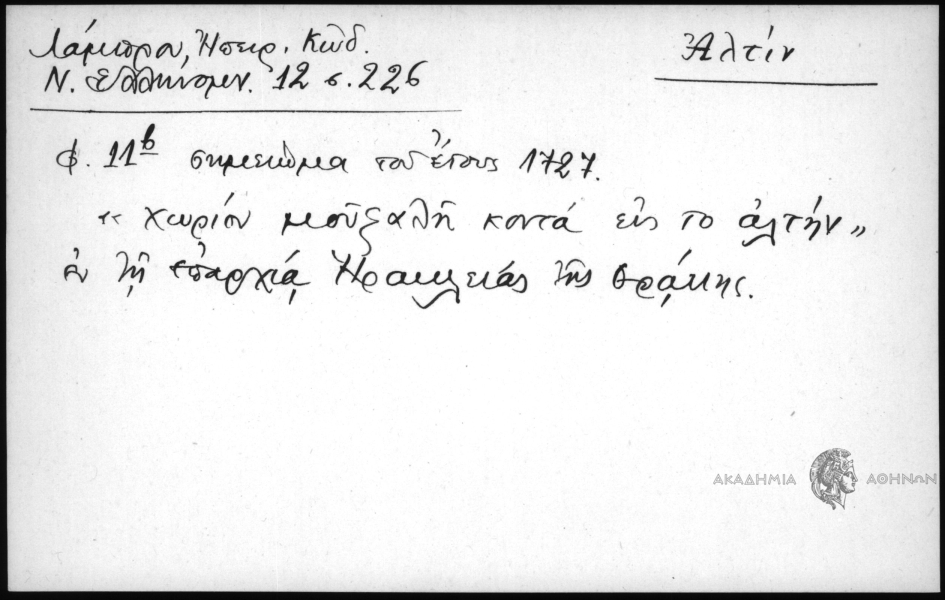 Λάμπρου, Ἠπειρ. Κώδ.
Ν. Ἑλληνομν. 12 σ. 226
Ἀλτίν
φ. 11β σημείωμα τοῦ ἔτους 1727.
« χωρίον μουζαλῆ κοντά εἰς το ἀλτήν »
ἐν τῇ ἐπαρχίᾳ Ἡρακλείας τῆς Θράκης.
ΑΚΑΔΗΜΙΑ ΑΘΗΝΩΝ